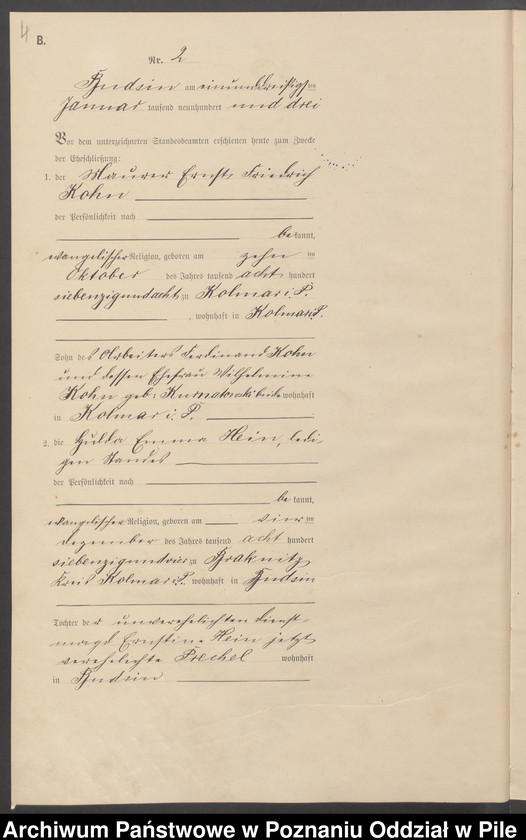 4
B.
Nr. 2
Budsin am einunddreißigsten
Januar tausend neunhundert und drei
Vor dem unterzeichneten Standesbeamten erschienen heute zum Zwecke
der Eheschließung:
1. der Maurer Ernst Friedrich
Kohn
der Persönlichkeit nach
be kannt,
evangelischer Religion, geboren am zehnten
Oktober des Jahres tausend acht hundert
siebenzigundacht zu Kolmar i. P.
, wohnhaft in Kolmar i. P.
Sohn des Arbeiters Ferdinand Kohn
und dessen Ehefrau Wilhelmine
Kohn geb. beide wohnhaft
in Kolmar i. P.
2. die Hulda Emma Hein, ledi-
gen Standes
der Persönlichkeit nach
be kannt,
evangelischer Religion, geboren am vierten
Dezember des Jahres tausend acht hundert
zu
Kreis Kolmar i. P. wohnhaft in Budsin
Tochter der unverehelichten Dienst-
magd Ernstine Hein jetzt
verehelichte wohnhaft
in Budsin
Archiwum Państwowe w Poznaniu Oddział w Pile